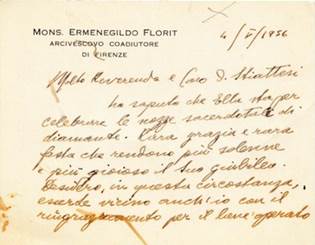 MONS. ERMENEGILDO FLORIT
ARCIVESCOVO COADIUTORE
DI FIRENZE
4/V/1956
Molto Reverendo e Caro D. Stiattesi
ho saputo che Ella sta per
celebrare le nozze sacerdotali di
diamante. Cara grazia e rara
festa che rendono più solenne
e più gioioso il suo giubileo.
Desidero, in questa circostanza,
esserle vicino anch'io con il
ringraziamento per il bene operato